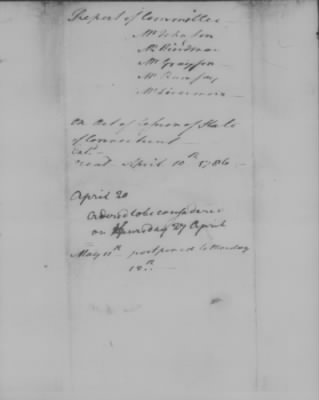 Report of Committee
Mr Johnson
Mr Hindman
Mr Grayson
Mr Ramsay
Mr Livermore
on Act of Cession of State
of Connecticut
Entd
read April 10th 1786
April 20
Ordered to be considered
on Thursday 27 April
May 11th postponed to Monday